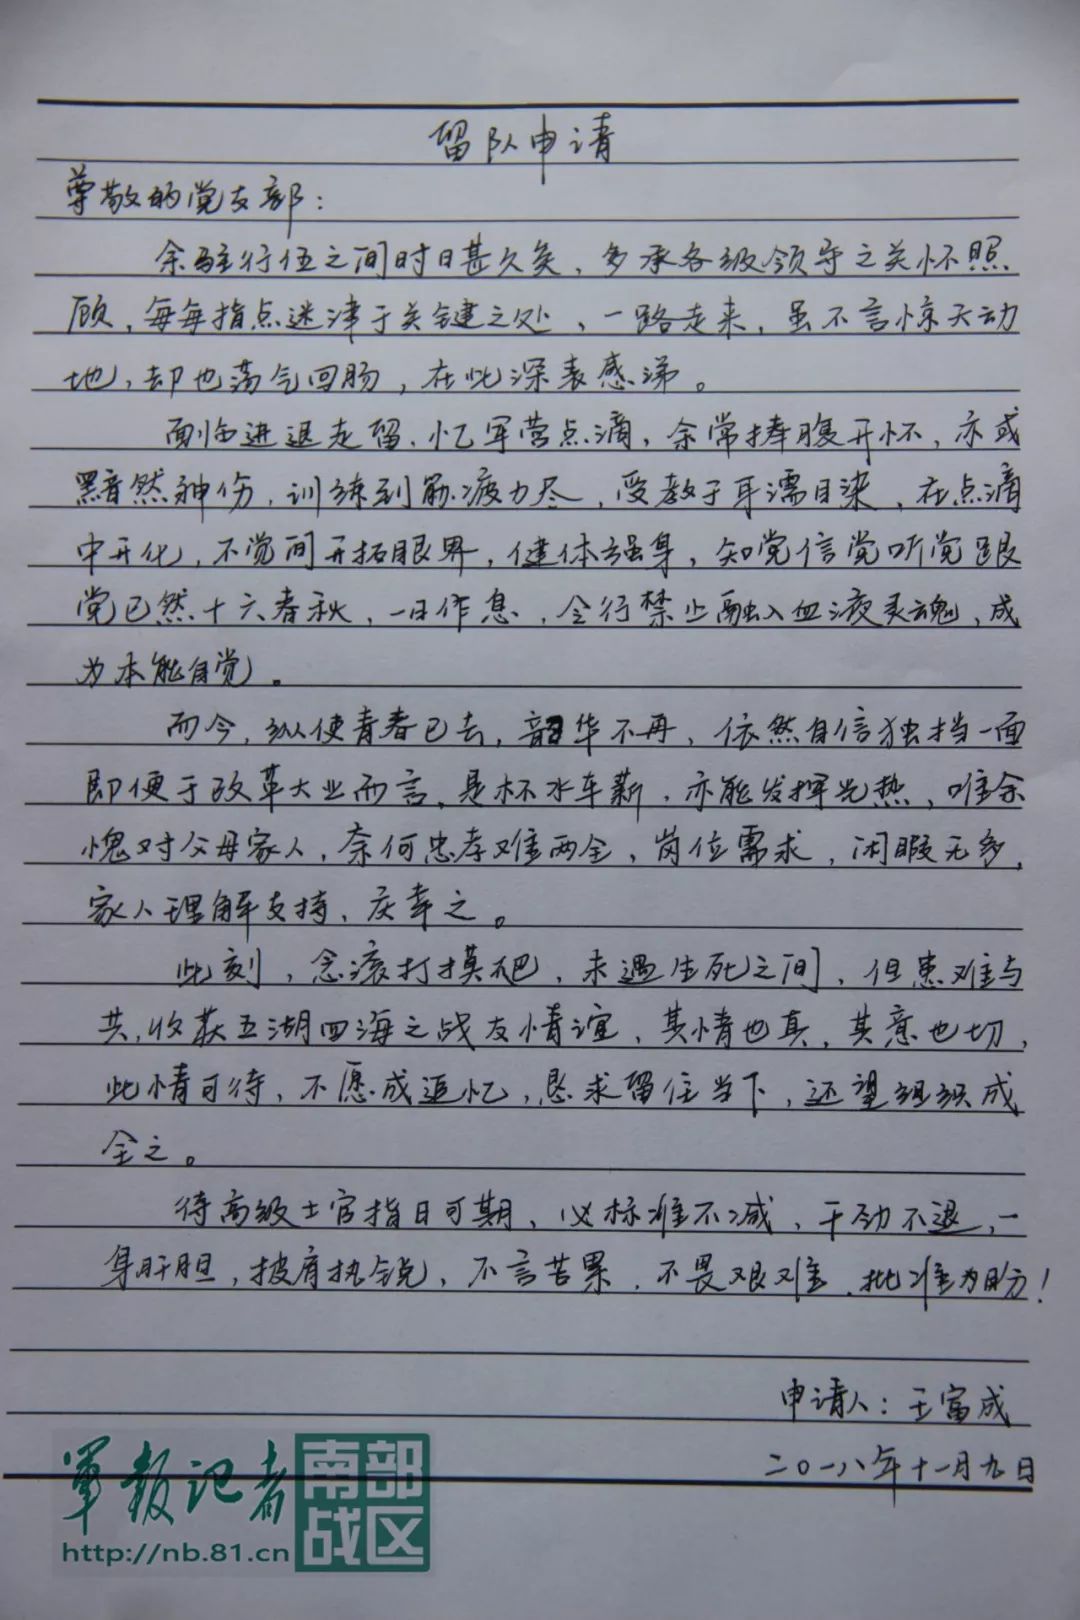 留队申请
尊敬的党支部：
余驻行伍之间时日甚久矣，多承各级领导之关怀照
顾，每每指点迷津于关键之处，一路走来，虽不言惊天动
地，却也荡气回肠，在此深表感涕。
面临进退走留，忆军营点滴，余常捧腹开怀，亦或
黯然神伤，训练到筋疲力尽，受教于耳濡目染，在点滴
中开化，不觉间开拓眼界，健体强身，知党信党听党跟
党已然十六春秋，一日作息，令行禁止融入血液灵魂，成
为本能自觉。
而今，纵使青春已去，韶华不再，依然自信独挡一面
即便于改革大业而言，是杯水车薪，亦能发挥光热，唯余
愧对父母家人，奈何忠孝难两全，岗位需求，闲暇无多，
家人理解支持，庆幸之。
此刻，念滚打摸爬，未遇生死之间，但患难与
共，收获五湖四海之战友情谊，其情也真，其意也切，
此情可待，不愿成追忆，恳求留住当下，还望组织成
全之。
待高级士官指日可期，必标准不减，干劲不退，一
身肝胆，披肩执锐，不言苦累，不畏艰难，批准为盼！
申请人：王富成
二〇一八年十一月九日
軍报记者
南部
战区
http://nb.81.cn